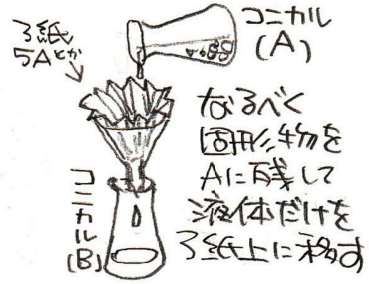 ろ紙
5Aとか
コニカル
(A)
なるべく
固形物を
Aに残して
液体だけを
ろ紙上に移す
コニカル
(B)